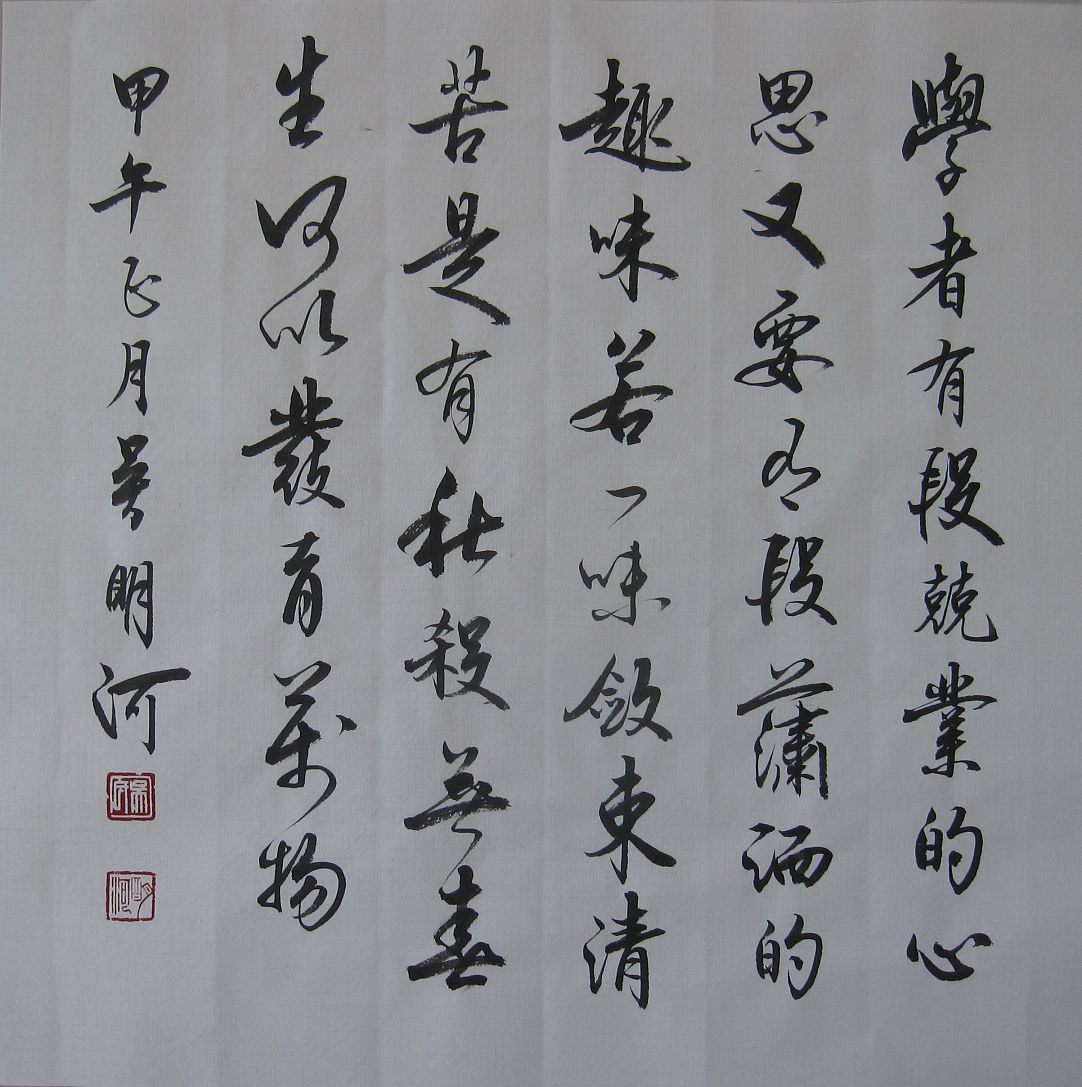 學者有段兢業的心
思又要有段瀟洒的
趣味若一味斂束清
苦是有秋殺無春
生何以發育萬物
甲午正月吳明河